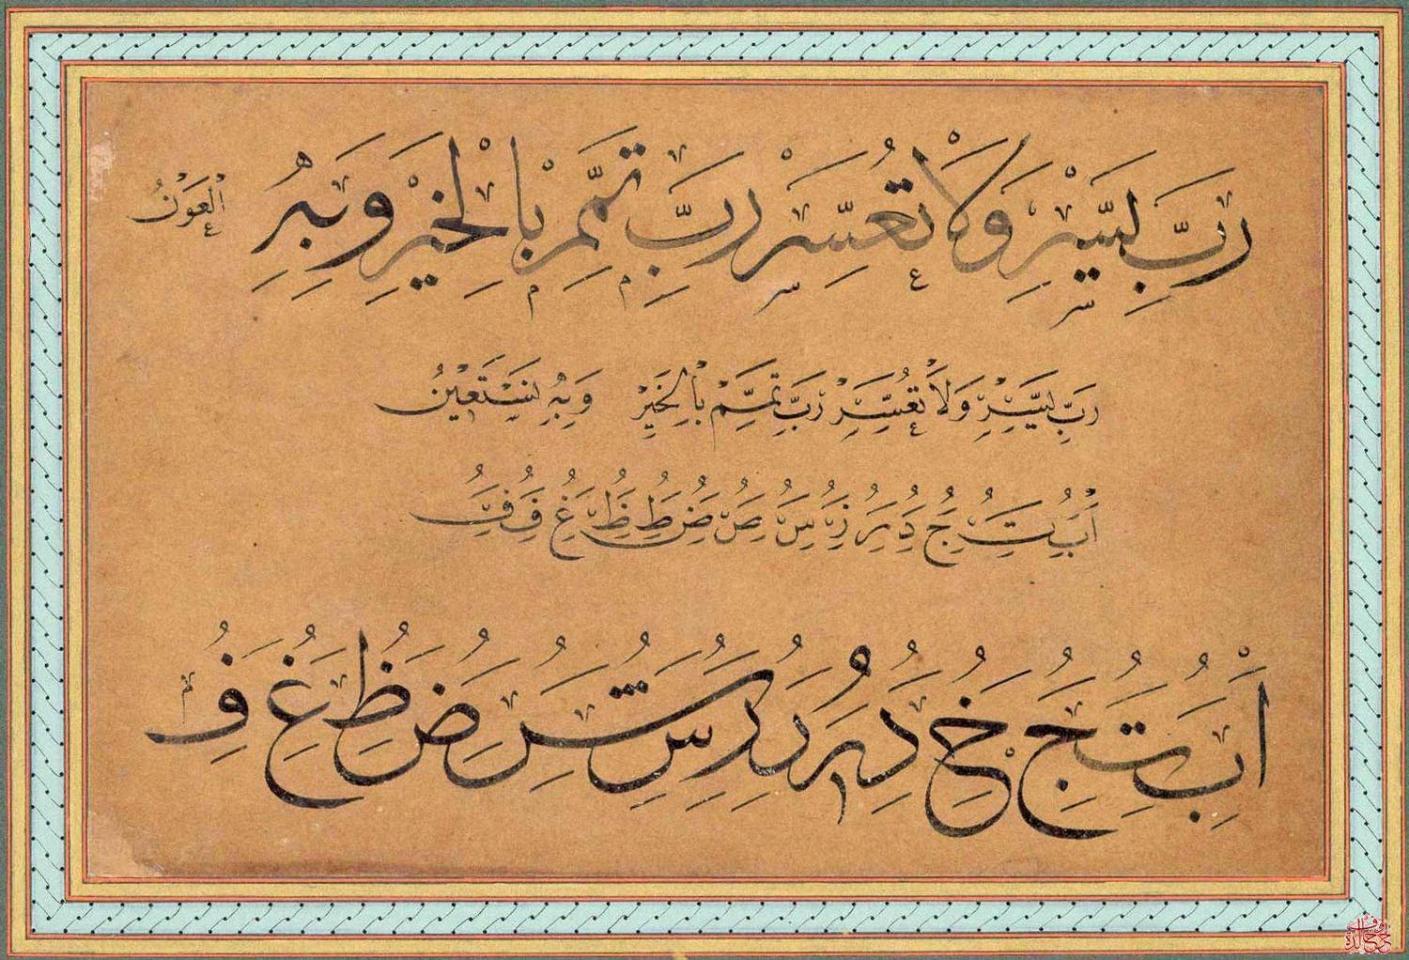 رَبِّ يَسِّرْ وَلَا تُعَسِّرْ رَبِّ تَمِّمْ بِالْخَيْرِ وَبِهِ الْعَوْنُ
رَبِّ يَسِّرْ وَلَا تُعَسِّرْ رَبِّ تَمِّمْ بِالْخَيْرِ وَبِهِ نَسْتَعِينُ
ا ب ت ج د ر ز س ص ض ط ظ ع غ ف ق
ا ب ت ج خ د ر س ش ض ظ غ ف